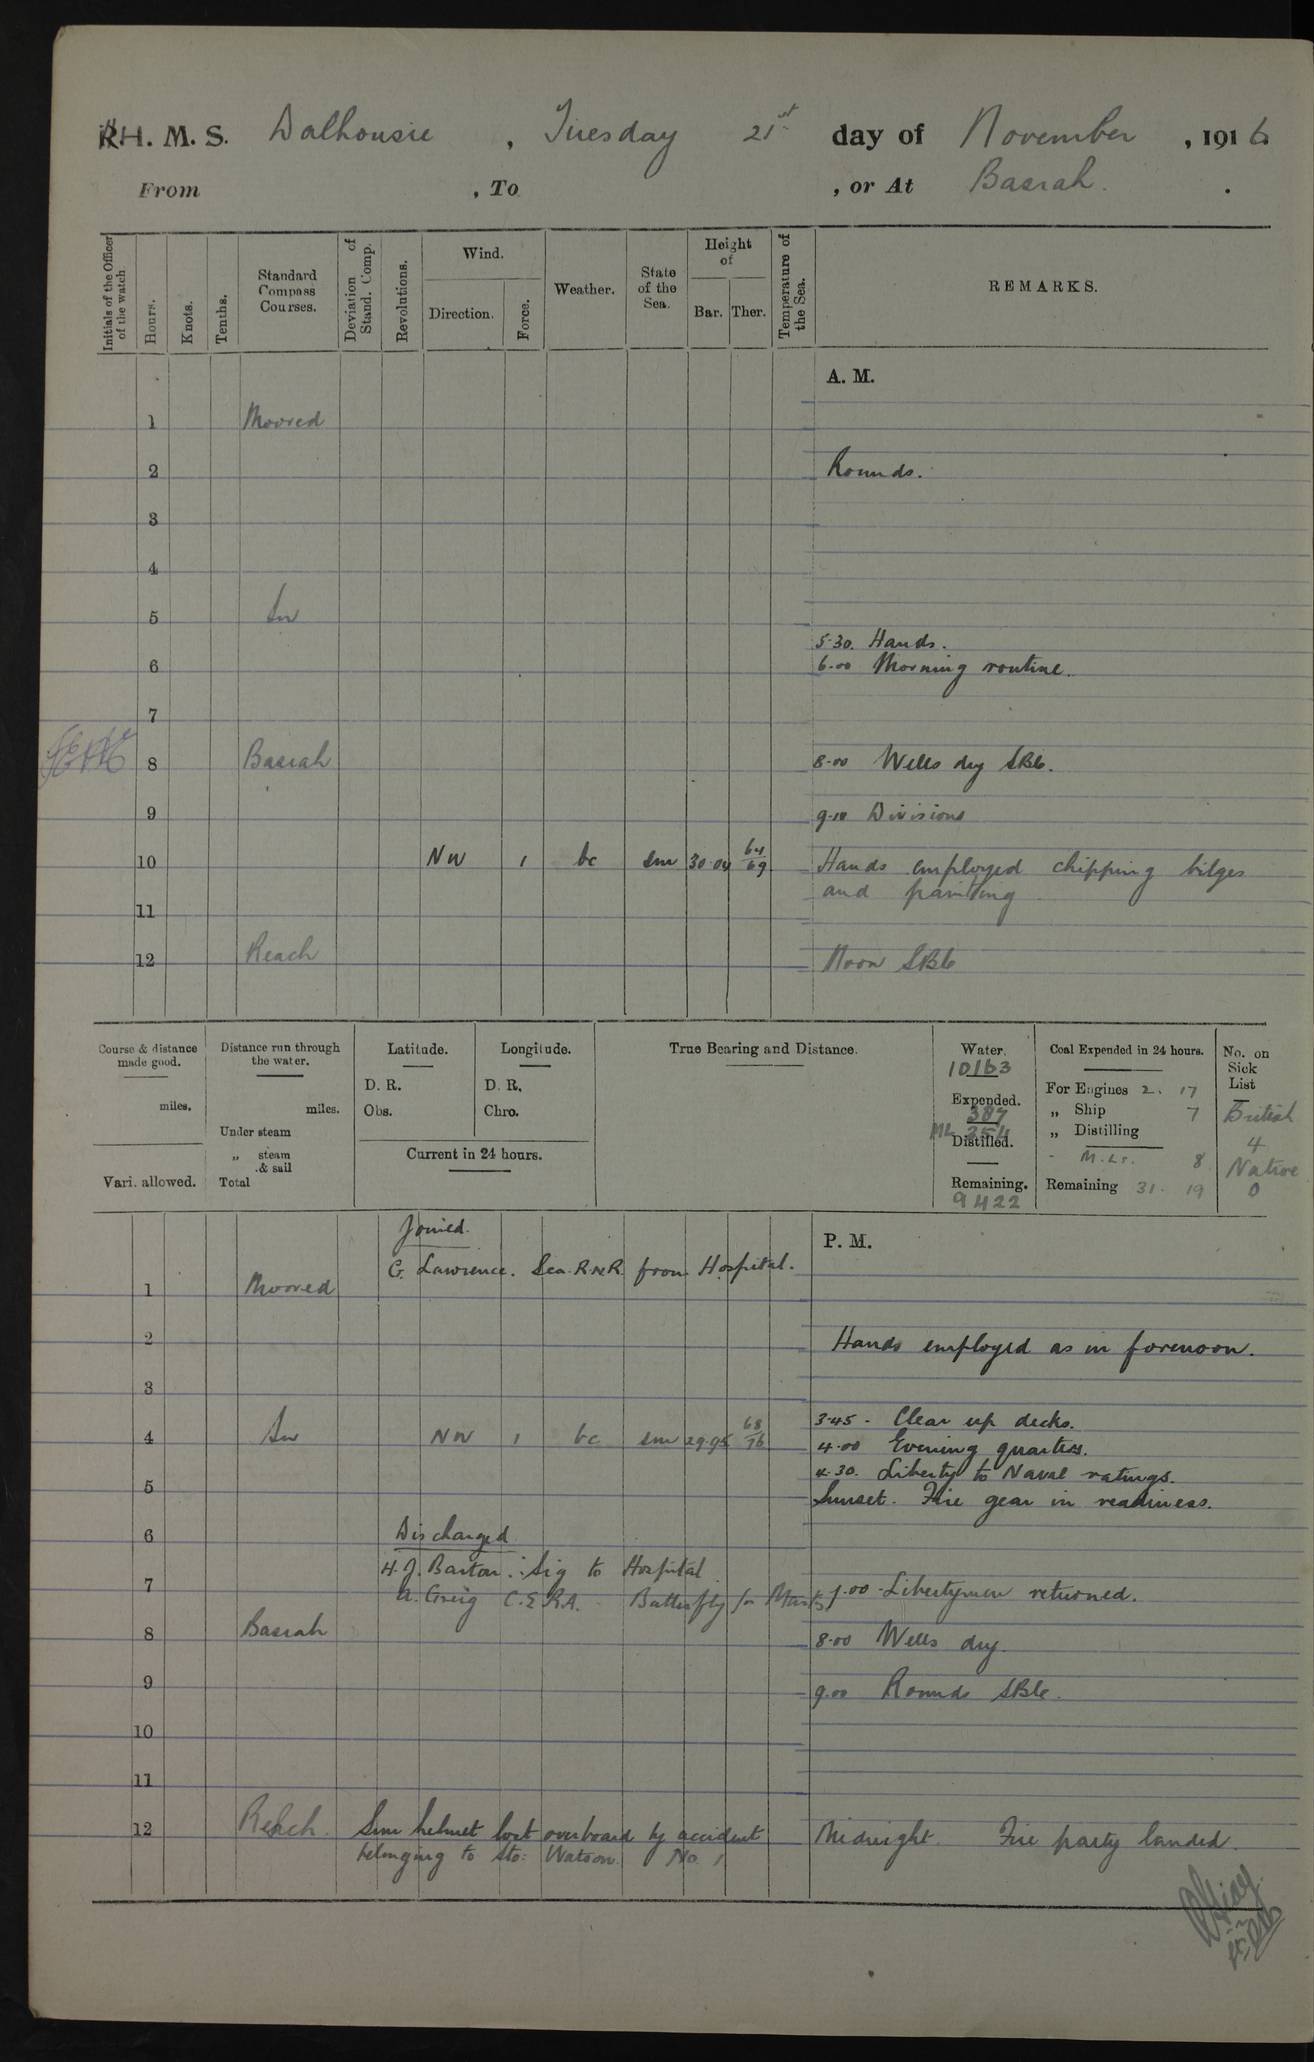 H. M. S. Dalhousie , Tuesday 21st day of November , 1916
From , To , or At Basrah .
Initials of the Officer of the watch.
Hours.
Knots.
Tenths.
Standard Compass Courses.
Deviation of Stand. Comp.
Revolutions.
Wind.
Direction.
Force.
Weather.
State of the Sea.
Height of
Bar. Ther.
Temperature of the Sea.
REMARKS.
A. M.
1 Moored
2 Rounds.
3
4
5 In
5.30. Hands.
6 6.00 Morning routine.
7
8 Basrah 8.00 Wells dry SBle.
9 9.10 Divisions
10 NW 1 bc sm 30.04 64/69 Hands employed chipping bilges
and painting
11
12 Reach Noon SBle
Course & distance made good.
miles.
Vari. allowed.
Distance run through the water.
miles.
Under steam
„ steam & sail
Total
Latitude.
D. R.
Obs.
Longitude.
D. R.
Chro.
Current in 24 hours.
True Bearing and Distance.
Water.
10163
Expended.
387
ML 354
Distilled.
Remaining.
9422
Coal Expended in 24 hours.
For Engines 2. 17
„ Ship 7
„ Distilling
M.Ls. 8
Remaining 31. 19
No. on Sick List
British
4
Native
0
Joined.
P. M.
G. Lawrence. Sea. R.N.R. from Hospital.
1 Moored
2 Hands employed as in forenoon.
3
3.45 - Clear up decks.
4 In NW 1 bc sm 29.95 68/76 4.00 Evening quarters.
4.30. Liberty to Naval ratings.
5 Sunset. Fire gear in readiness.
6 Discharged
H.J. Barton. Sig to Hospital
7 7.00 Libertymen returned.
A. Greig C.E.R.A. Butterfly for
8 Basrah 8.00 Wells dry.
9 9.00 Rounds SBle.
10
11
12 Reach. Sun helmet lost overboard by accident Midnight. Fire party landed.
belonging to Sto: Watson. No. 1